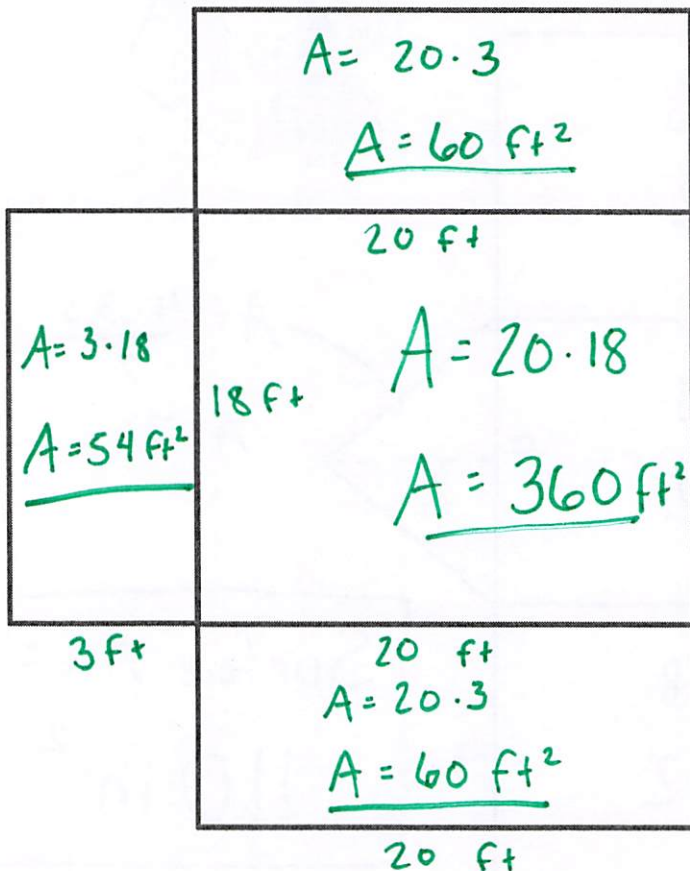 A = 20 · 3
A = 60 ft²
20 ft
A = 3 · 18
A = 54 ft²
18 ft
A = 20 · 18
A = 360 ft²
3 ft
20 ft
A = 20 · 3
A = 60 ft²
20 ft